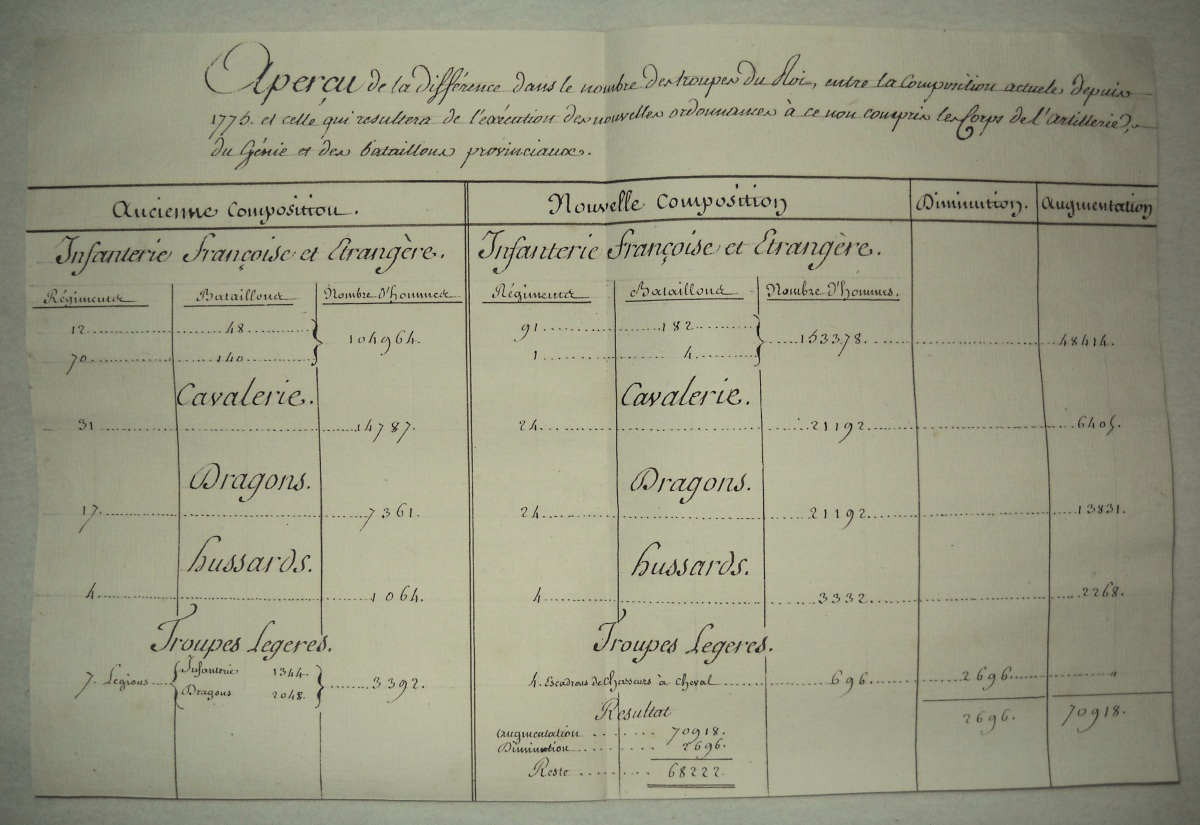 Aperçu de la différence dans le nombre des troupes du Roi, entre la Composition actuele depuis
1775. et celle qui resultera de l'éxécution des nouvelles ordonnances à ce non compris les Corps de l'artillerie,
du Génie et des bataillons provinciaux.
Ancienne Composition. Nouvelle Composition Diminution. Augmentation
Infanterie Françoise et Etrangère. Infanterie Françoise et Etrangère.
Régiments Bataillons Nombre d'hommes Régiments Bataillons Nombre d'hommes.
12 48 91 182
104964. 153378. 48414.
70 140 1 4
Cavalerie. Cavalerie.
31 14787. 24 21192 6405.
Dragons. Dragons.
17. 7361. 24 21192 13831.
hussards. hussards.
4. 1064. 4 3332 2268.
Troupes Legeres. Troupes Legeres.
7. Légions Infanterie 1344. 3392. 4. Escadrons de Chasseurs à Cheval 696. 2696 "
Dragons 2048.
Resultat 2696. 70918.
Augmentation 70918.
Diminution 2696.
Reste 68222.